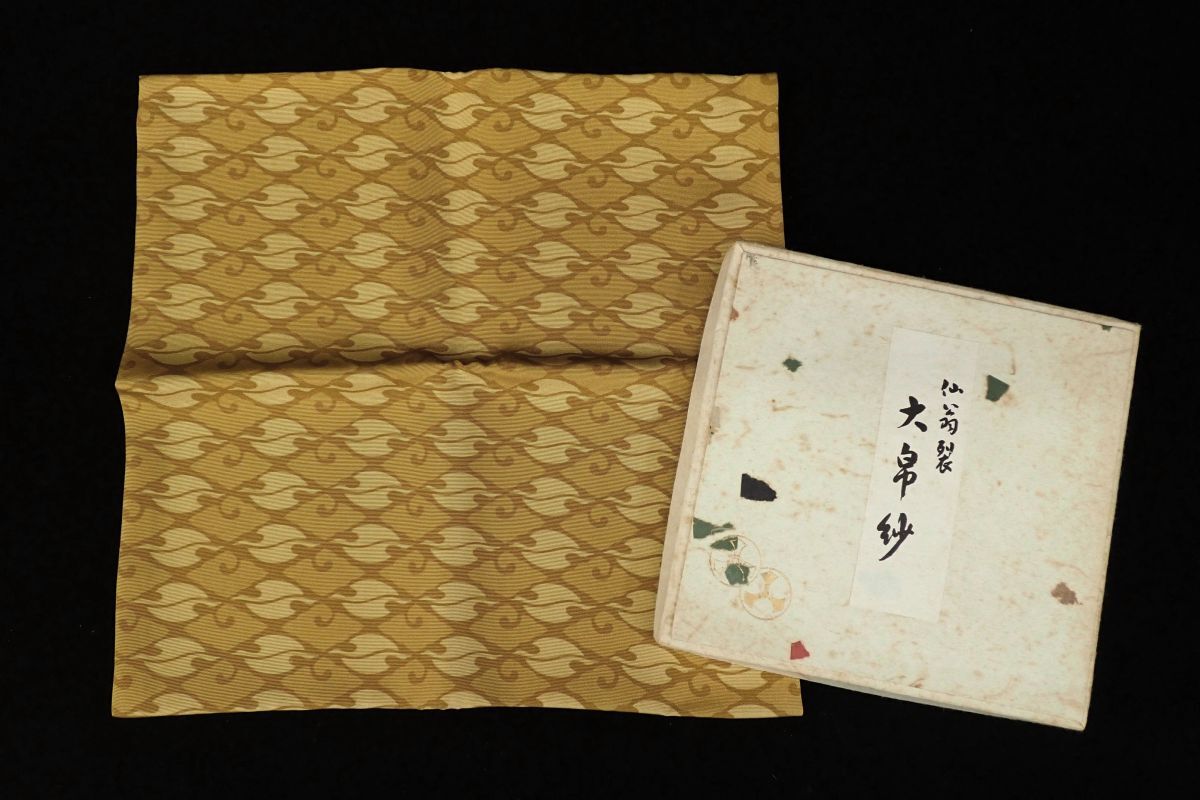 仙翁裂
大帛紗